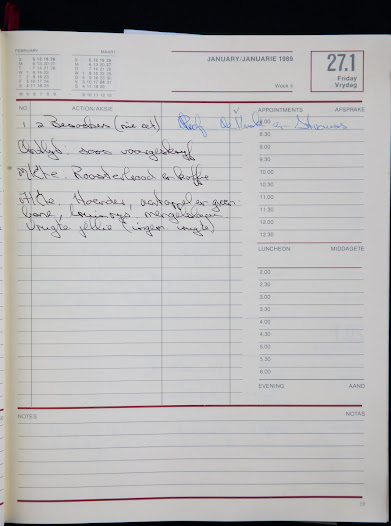 FEBRUARIE MAART
JANUARY/JANUARIE 1989
Week 4
27.1
Friday
Vrydag
NO ACTION/AKSIE APPOINTMENTS AFSPRAKE
1. 2 Besoekers (nie eet) Prof de Strauss
8.00
8.30
Ontbyt. soos voorgeskryf
9.00
9.30
M/Ete. Roosterbrood en koffie
10.00
10.30
A/Ete. Hoender, aartappel en groen
11.00
bone, rys, mengelslaai
11.30
Vrugte jellie (ingem. vrugte)
12.00
12.30
LUNCHEON MIDDAGETE
2.00
2.30
3.00
3.30
4.00
4.30
5.00
5.30
6.00
EVENING AAND
NOTES NOTAS